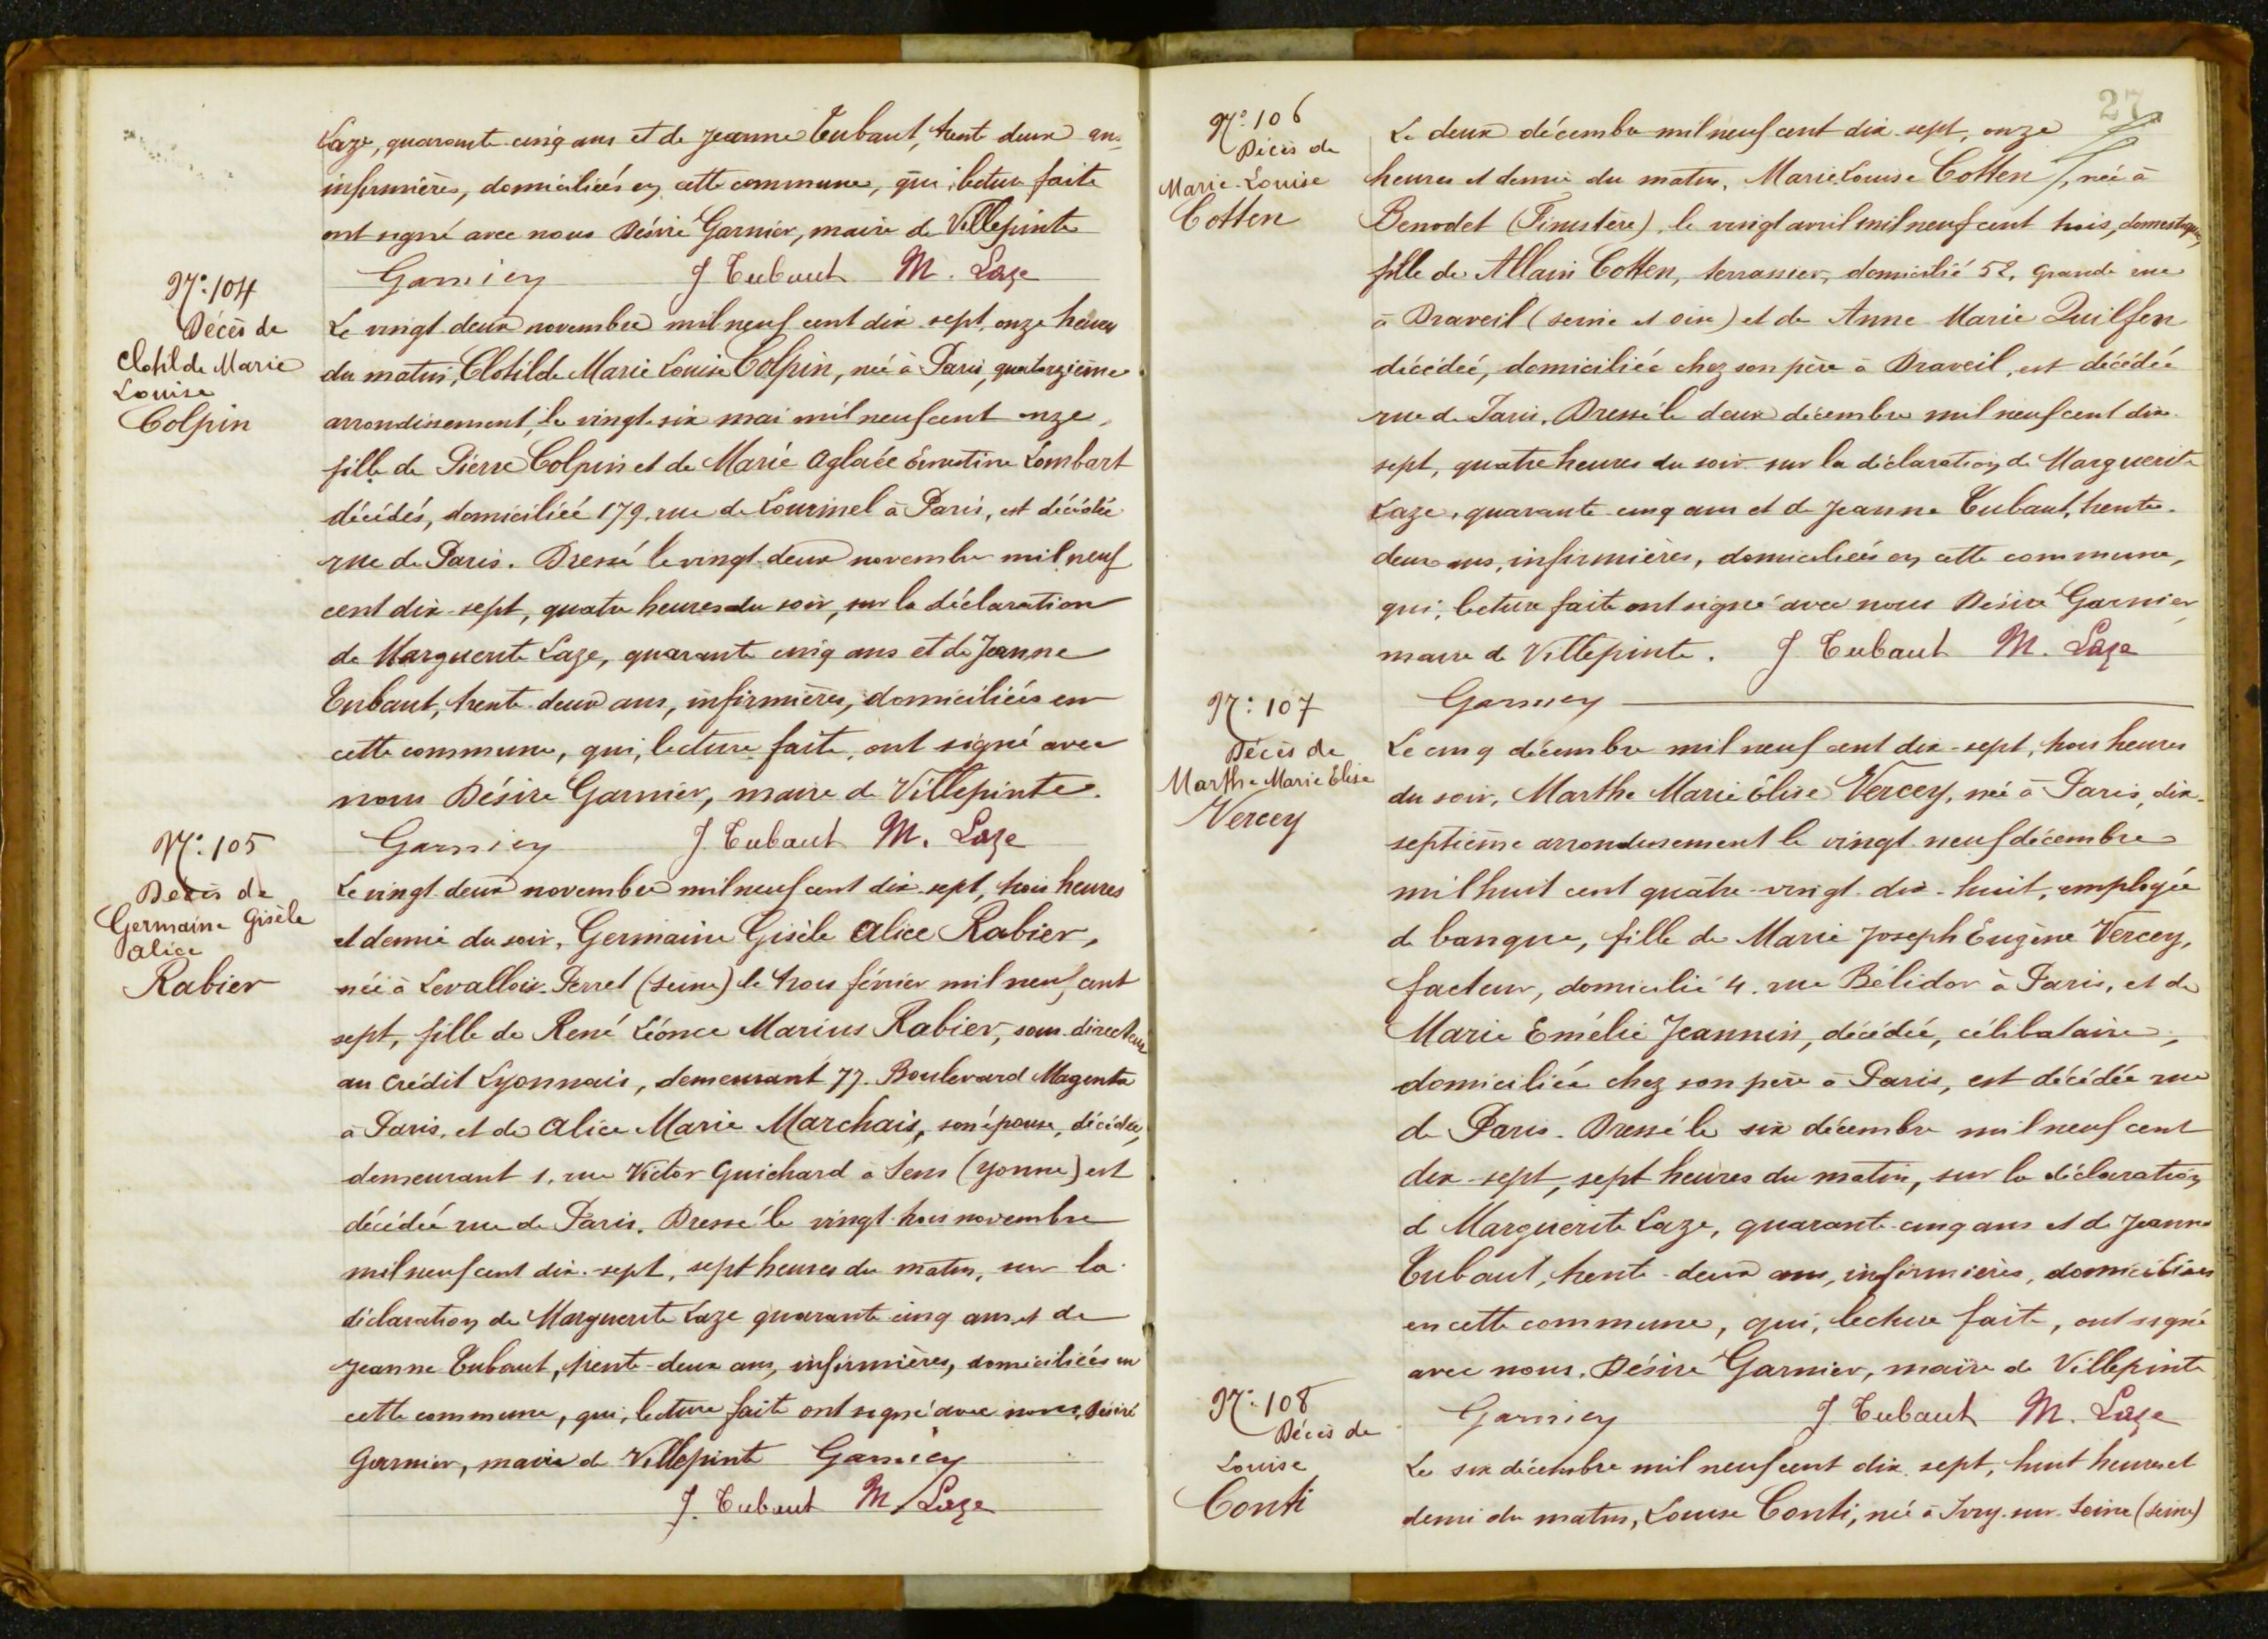 Laze, quarante cinq ans et de Jeanne Tubaut, trente deux ans
infirmières, domiciliées en cette commune, qui, lecture faite
ont signé avec nous Désiré Garnier, maire de Villepinte
Garnier J Tubaut M. Laze
N° 104
Décès de
Clotilde Marie
Louise
Colpin
Le vingt deux novembre mil neuf cent dix-sept, onze heures
du matin, Clotilde Marie Louise Colpin, née à Paris, quatorzième
arrondissement, le vingt-six mai mil neuf cent onze,
fille de Pierre Colpin et de Marie Aglaée Ernestine Lombart
décédés, domiciliée 179, rue de Lourmel à Paris, est décédée
rue de Paris. Dressé le vingt-deux novembre mil neuf
cent dix-sept, quatre heures du soir, sur la déclaration
de Marguerite Laze, quarante cinq ans et de Jeanne
Tubaut, trente-deux ans, infirmières, domiciliées en
cette commune, qui, lecture faite, ont signé avec
nous Désiré Garnier, maire de Villepinte.
Garnier J Tubaut M. Laze
N° 105
Décès de
Germaine Gisèle
Alice
Rabier
Le vingt-deux novembre mil neuf cent dix-sept, trois heures
et demie du soir, Germaine Gisèle Alice Rabier,
née à Levallois-Perret (Seine) le trois février mil neuf cent
sept, fille de René Léonce Marius Rabier, sous-directeur
au Crédit Lyonnais, demeurant 77. Boulevard Magenta
à Paris, et de Alice Marie Marchais, son épouse, décédée,
demeurant 1. rue Victor Guichard à Sens (Yonne) est
décédée rue de Paris. Dressé le vingt-trois novembre
mil neuf cent dix-sept, sept heures du matin, sur la
déclaration de Marguerite Laze quarante cinq ans et de
Jeanne Tubaut, trente-deux ans, infirmières, domiciliées en
cette commune, qui, lecture faite ont signé avec nous, Désiré
Garnier, maire de Villepinte Garnier
J. Tubaut M. Laze
27
N° 106
Décès de
Marie-Louise
Cotten
Le deux décembre mil neuf cent dix-sept, onze
heures et demie du matin, Marie Louise Cotten, née à
Benodet (Finistère), le vingt avril mil neuf cent trois, domestique,
fille de Allain Cotten, terrassier, domicilié 52, grande rue
à Draveil (Seine et Oise) et de Anne Marie Quilfen
décédée, domiciliée chez son père à Draveil, est décédée
rue de Paris. Dressé le deux décembre mil neuf cent dix-
sept, quatre heures du soir sur la déclaration de Marguerite
Laze, quarante cinq ans et de Jeanne Tubaut, trente-
deux ans, infirmières, domiciliées en cette commune,
qui, lecture faite ont signé avec nous Désiré Garnier,
maire de Villepinte. J Tubaut M. Laze
Garnier
N° 107
Décès de
Marthe Marie Elise
Vercey
Le cinq décembre mil neuf cent dix-sept, trois heures
du soir, Marthe Marie Elise Vercey, née à Paris, dix-
septième arrondissement le vingt-neuf décembre
mil huit cent quatre-vingt-dix-huit, employée
de banque, fille de Marie Joseph Eugène Vercey,
facteur, domicilié 4. rue Bélidor à Paris, et de
Marie Emélie Jeannin, décédée, célibataire,
domiciliée chez son père à Paris, est décédée rue
de Paris. Dressé le six décembre mil neuf cent
dix-sept, sept heures du matin, sur la déclaration
de Marguerite Laze, quarante-cinq ans et de Jeanne
Tubaut, trente-deux ans, infirmières, domiciliées
en cette commune, qui, lecture faite, ont signé
avec nous, Désiré Garnier, maire de Villepinte
Garnier J Tubaut M. Laze
N° 108
Décès de
Louise
Conti
Le six décembre mil neuf cent dix-sept, huit heures et
demi du matin, Louise Conti, née à Ivry-sur-Seine (Seine)